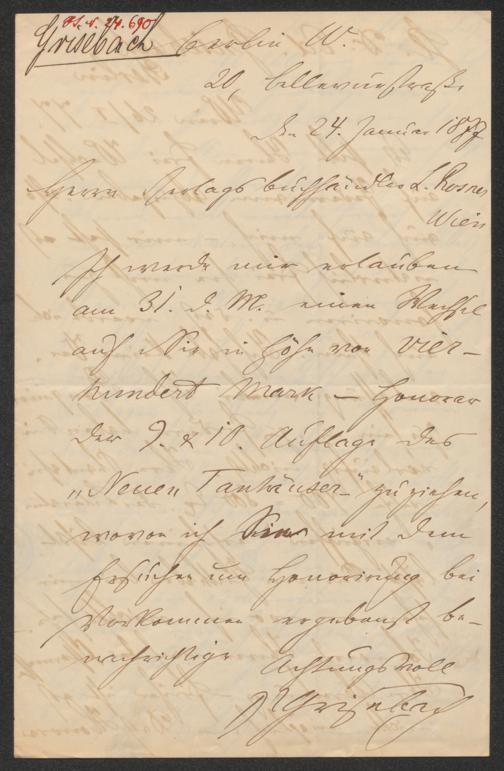 I.N. 24.690
Grisebach
Berlin W.
20, Bellevuestraße
den 24. Januar 1877
Herrn Verlagsbuchhändler L. Rosner
Wien
Ich werde mir erlauben
am 31. d. M. einen Wechsel
auf Sie in Höhe von vier-
hundert Mark – Honorar
der 9. & 10. Auflage des
„Neuen Tanhäuser" zu ziehen,
wovon ich Sie mit dem
Ersuchen um Honorirung bei
Vorkommen ergebenst be-
nachrichtige
Achtungsvoll
Grisebach